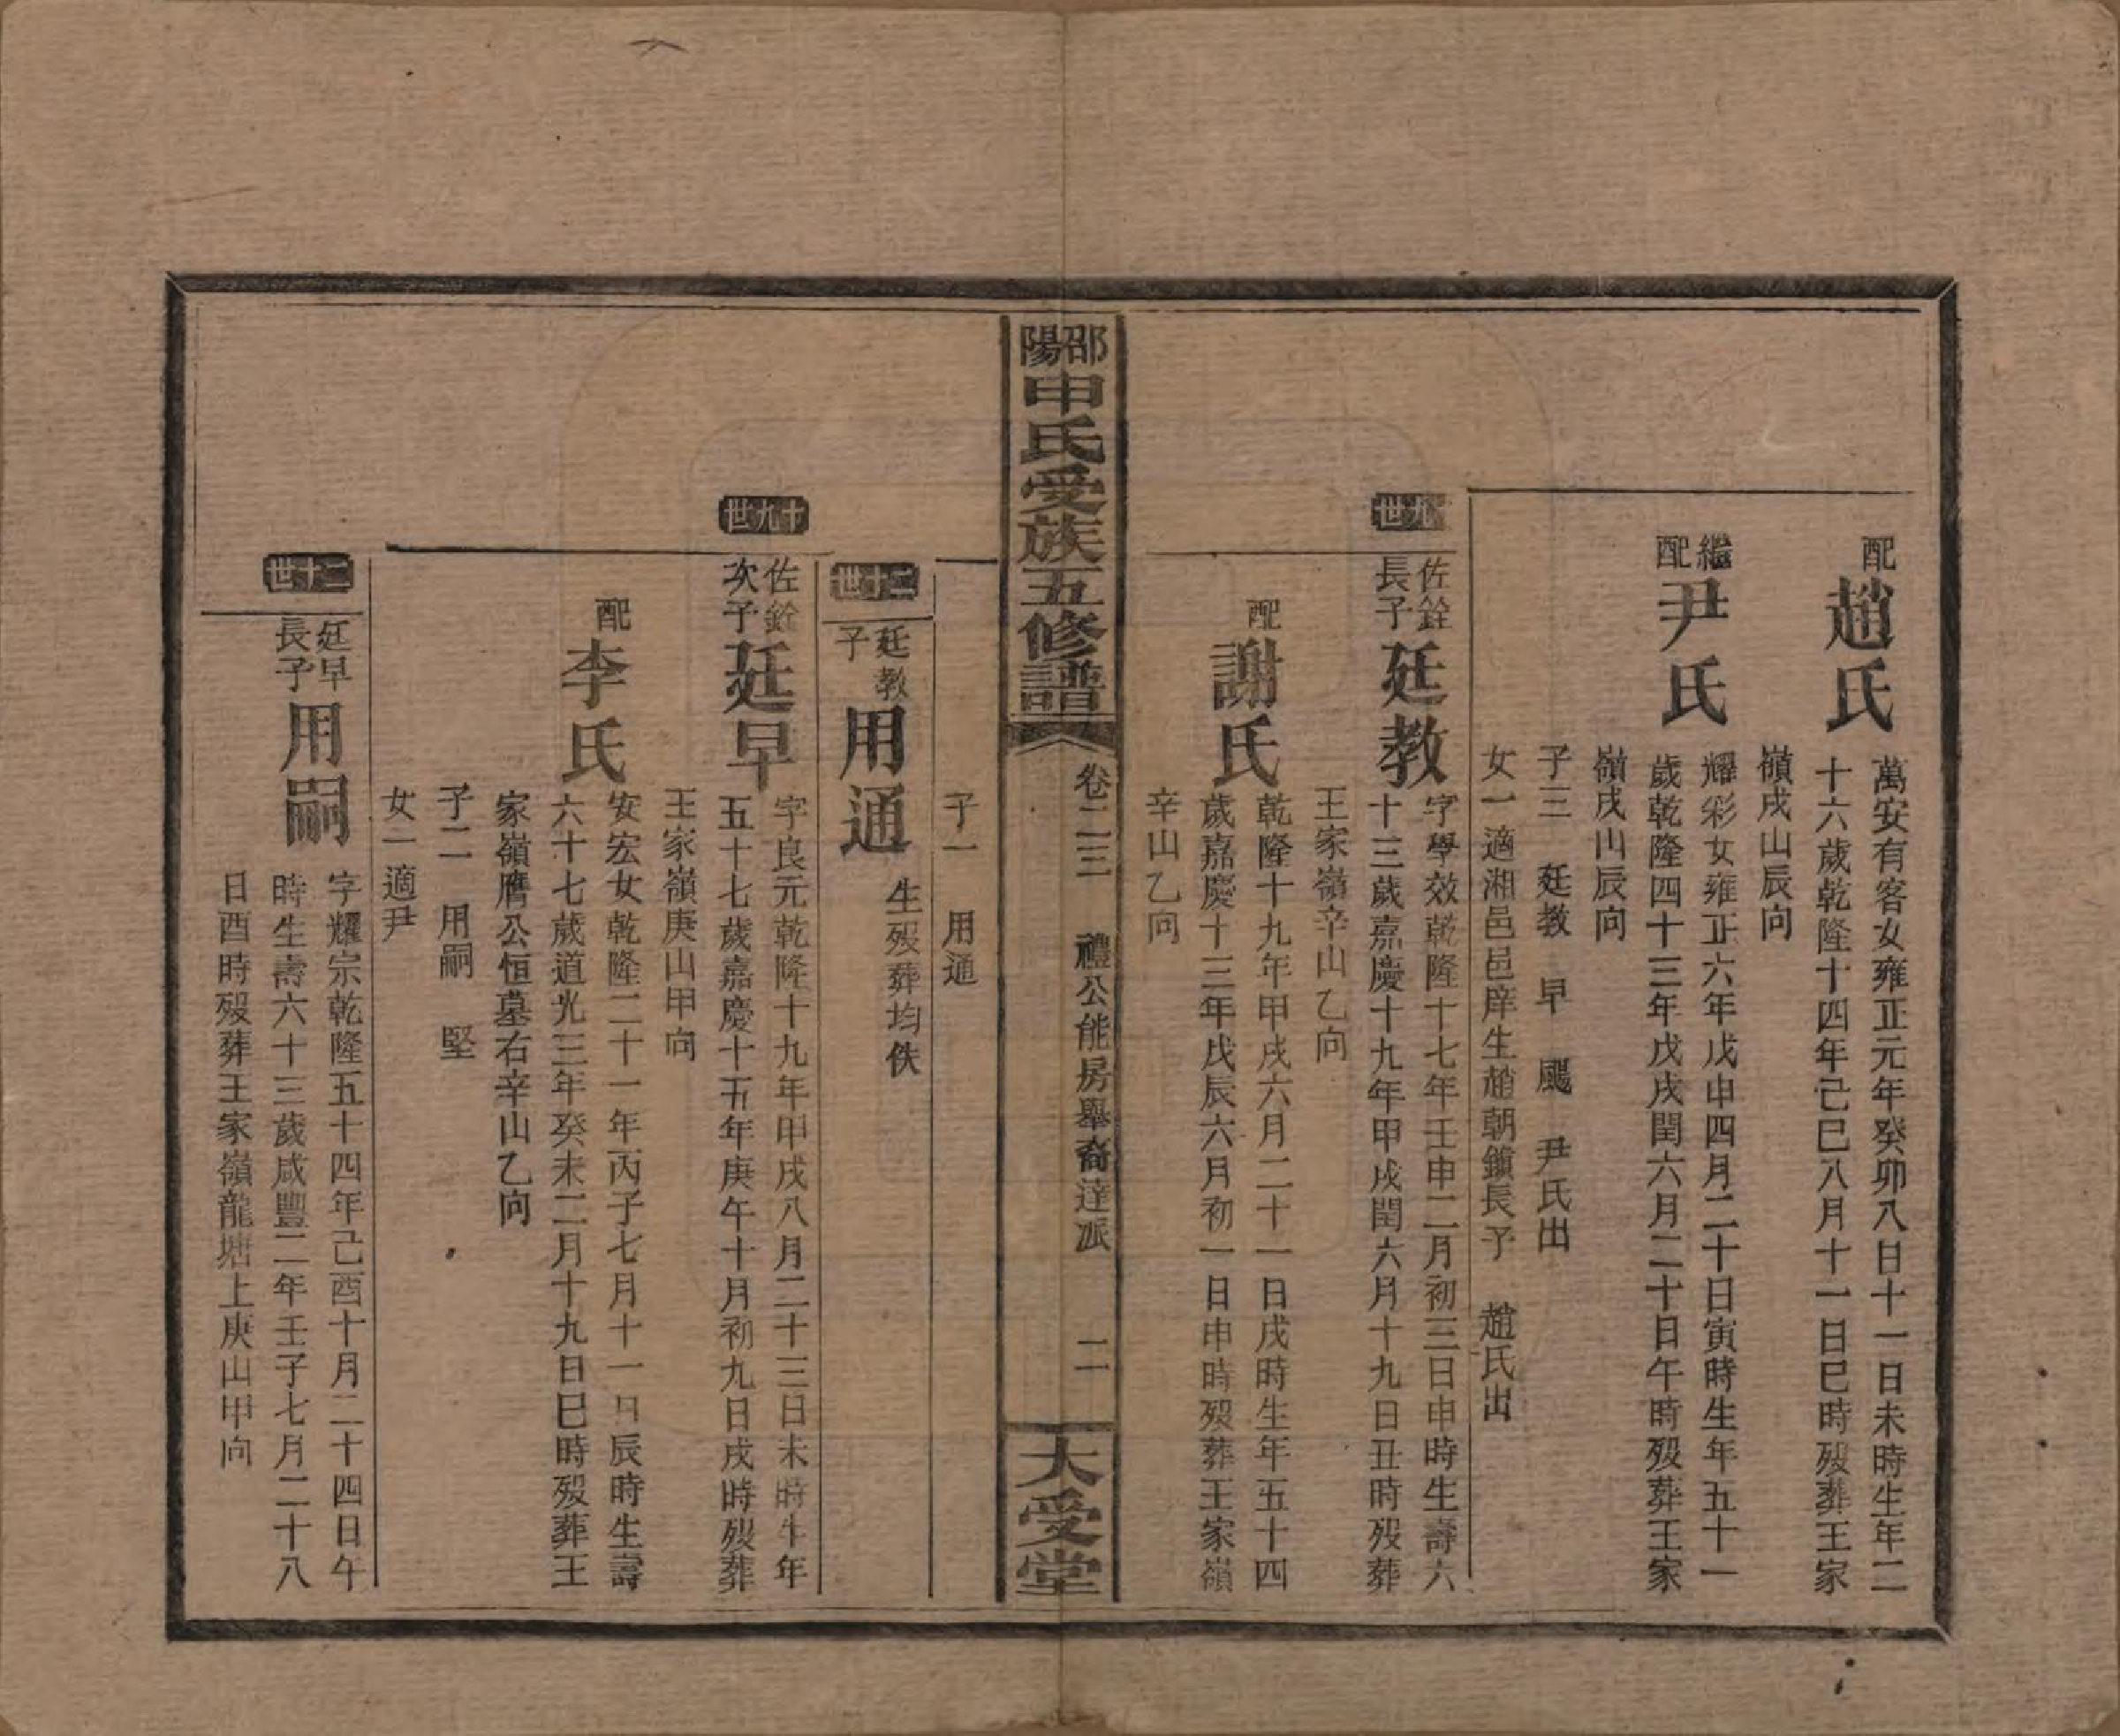 配
趙氏
萬安有客女雍正元年癸卯八日十一日未時生年二
十六歲乾隆十四年己巳八月十一日巳時歿葬王家
嶺戌山辰向
繼配
尹氏
耀彩女雍正六年戊申四月二十日寅時生年五十一
歲乾隆四十三年戊戌閏六月二十日午時歿葬王家
嶺戌山辰向
子三 廷教 早 颺 尹氏出
女一適湘邑邑庠生趙朝鎮長子 趙氏出
十九世
佐銓
長子
廷教
字學效乾隆十七年壬申二月初三日申時生壽六
十三歲嘉慶十九年甲戌閏六月十九日丑時歿葬
王家嶺辛山乙向
配
謝氏
乾隆十九年甲戌六月二十一日戌時生年五十四
歲嘉慶十三年戊辰六月初一日申時歿葬王家嶺
辛山乙向
邵陽申氏受族五修譜
卷二三 禮公能房舉裔達派 二
大受堂
子一 用通
二十世
廷教
子
用通
生歿葬均佚
十九世
佐銓
次子
廷早
字良元乾隆十九年甲戌八月二十三日未時生年
五十七歲嘉慶十五年庚午十月初九日戌時歿葬
王家嶺庚山甲向
配
李氏
安宏女乾隆二十一年丙子七月十一日辰時生壽
六十七歲道光三年癸未二月十九日巳時歿葬王
家嶺膺公恒墓右辛山乙向
子二 用嗣 堅
女一適尹
二十世
廷早
長子
用嗣
字耀宗乾隆五十四年己酉十月二十四日午
時生壽六十三歲咸豐二年壬子七月二十八
日酉時歿葬王家嶺龍塘上庚山甲向